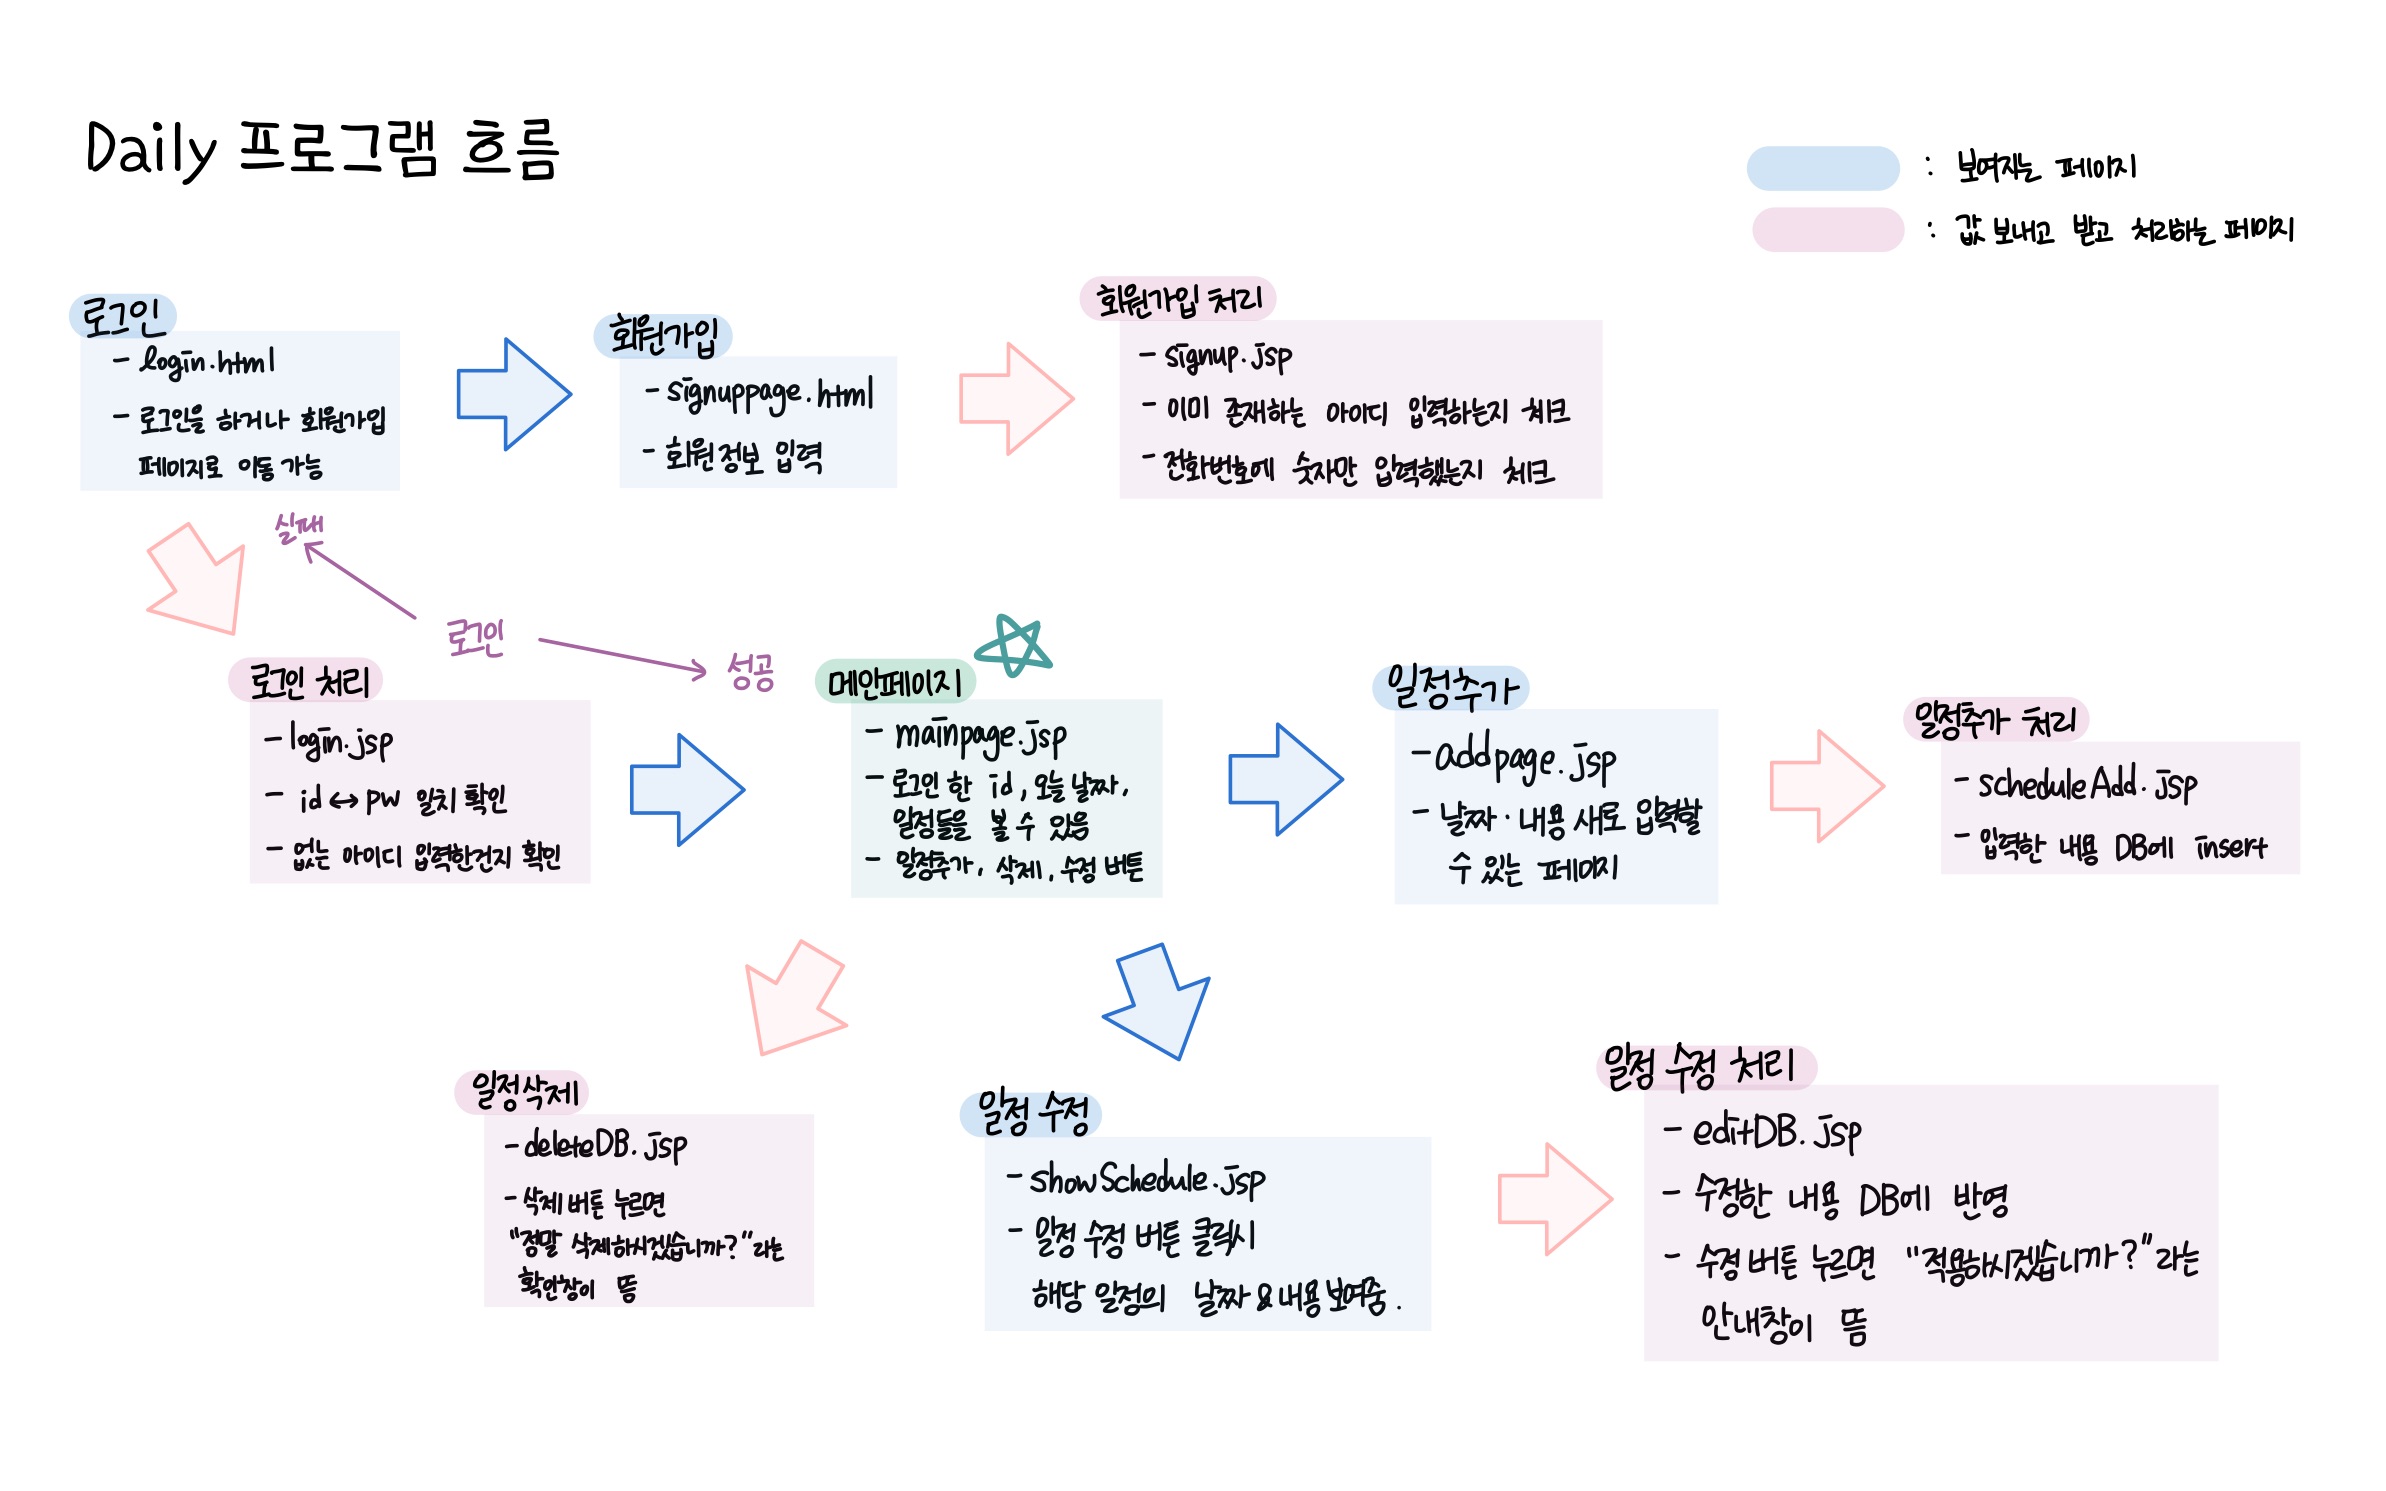 Daily 프로그램 흐름
: 보여지는 페이지
: 값 보내고 받고 처리하는 페이지
로그인
- login.html
- 로그인을 하거나 회원가입
페이지로 이동 가능
회원가입
- signuppage.html
- 회원정보 입력
회원가입 처리
- signup.jsp
- 이미 존재하는 아이디 입력하는지 체크
- 전화번호에 숫자만 입력했는지 체크
실패
로그인
성공
로그인 처리
- login.jsp
- id ↔ pw 일치 확인
- 없는 아이디 입력한건지 확인
메인페이지
- mainpage.jsp
- 로그인 한 id, 오늘 날짜,
일정들을 볼 수 있음
- 일정추가, 삭제, 수정 버튼
일정추가
- addpage.jsp
- 날짜·내용 새로 입력할
수 있는 페이지
일정추가 처리
- scheduleAdd.jsp
- 입력한 내용 DB에 insert
일정삭제
- deleteDB.jsp
- 삭제 버튼 누르면
"정말 삭제하시겠습니까?"라는
확인창이 뜸
일정 수정
- showSchedule.jsp
- 일정 수정 버튼 클릭시
해당 일정의 날짜&내용 보여줌.
일정 수정 처리
- editDB.jsp
- 수정한 내용 DB에 반영
- 수정 버튼 누르면 "적용하시겠습니까?"라는
안내창이 뜸